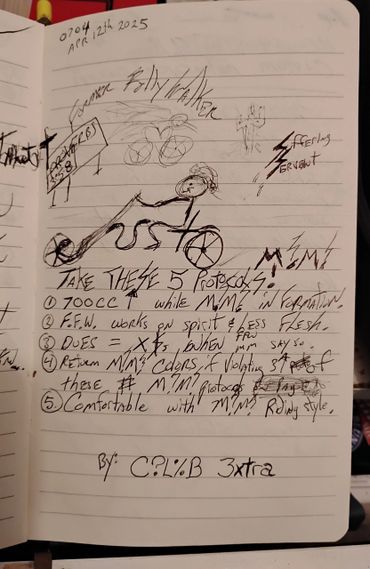 0704
APR 12th 2025
Former Billy Walker
PROVERBS
Suffering
Servant
M?M?
TAKE THESE 5 Protocols!
① 700CC ↑ while M?M? in Formation.
② F.F.W. works on spirit & Less Flesh.
③ Dues = when FFW say so.
④ Return M?M? Colors if violating of
these # M?M? protocols
⑤ Comfortable with M?M? Riding style.
By: C?L%B 3xtra